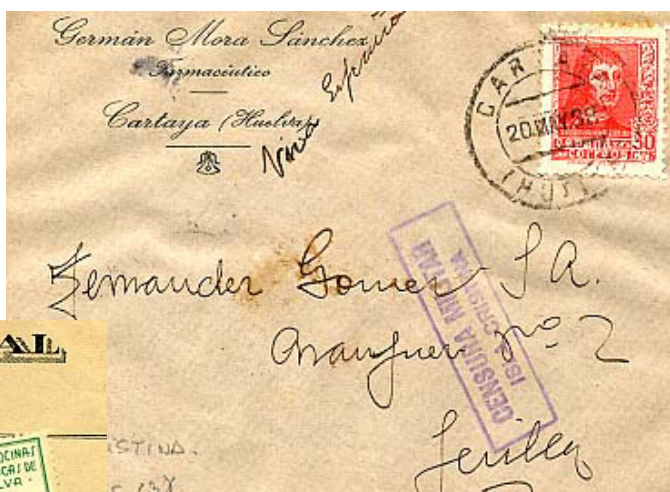 Germán Mora Sánchez
Farmacéutico
Cartaya (Huelva)
Viva España
CAR
20 MAY 38
(HUE
CORREOS
30
CENSURA MILITAR
ISLA CRISTINA.
Fernandez Gomez S.A.
Aranjuez nº 2
Sevilla
AL,
STINA.
OCINAS
GAS DE
LVA.